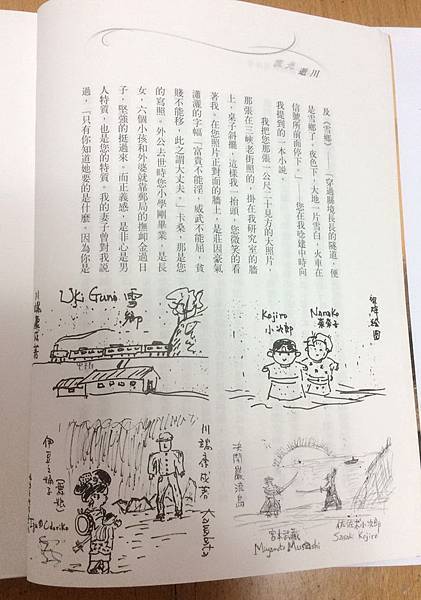 川逝光流
及《雪鄉》——「穿過縣境長長的隧道，便
是雪鄉了。夜色下，大地一片雪白，火車在
信號所前面停下。」——您在我唸建中時向
我提到的一本小說。
我把您那張一公尺二十見方的大照片，
那張在三峽老街照的，掛在我研究室的牆
上，桌子斜擺，這樣我一抬頭，您微笑的看
著我。在您照片正對面的牆上，是莊因豪氣
瀟灑的字幅「富貴不能淫，威武不能屈，貧
賤不能移，此之謂大丈夫。」卡桑，那是您
的寫照。外公去世時您小學剛畢業，是長
女，六個小孩和外婆就靠郵局的撫卹金過日
子，堅強的挺過來。而正義感，是非心是男
人特質，也是您的特質。我的妻子曾對我説
過，「只有你知道她要的是什麼。因為你是
Kojiro
小次郎
Nanako
奈奈子
Uki Guni 雪
鄉
川端康成著
川端康成著
伊豆之踊子
決鬪巖流島
宮本武藏
Miyamoto Musashi
佐佐木小次郎
Sasaki Kojiro